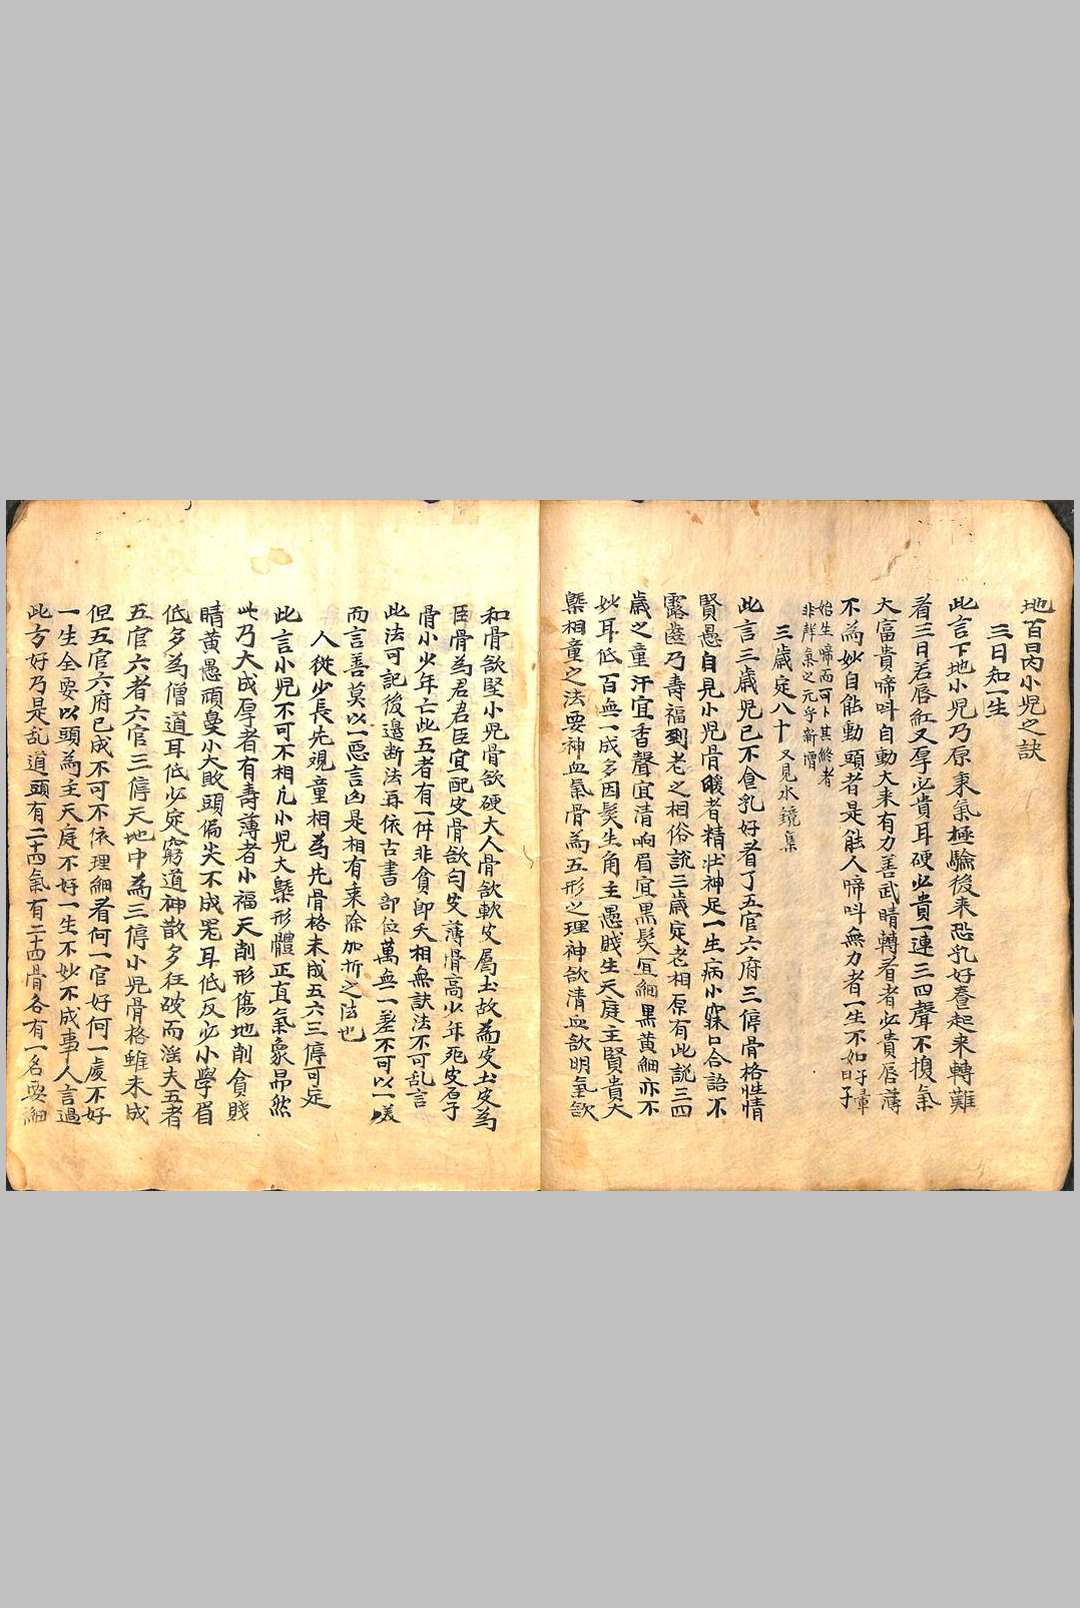 地百日內小児之訣
三日知一生
此言下地小児乃原來氣極驗後來恐乳好養起來轉難
看三日若唇紅又厚必貴耳硬必貴一連三四聲不換氣
大富貴啼呌自動大来有力善武睛轉看者必貴唇薄
不為妙自能動頭者是能人啼呌無力者一生不如
始生啼而可卜其終者
非辭氣之元乎新增
三歲定八十 又見水鏡集
此言三歲児已不食乳好看了五官六府三停骨格性情
賢愚自見小児骨暖者精壯神足一生病小寐口合語不
露齒乃壽福到老之相俗說三歲定老相原有此説三四
歲之童汗宜香聲宜清响眉宜黒髮宜細黒黃細亦不
妙耳低百無一成多因髮生角主愚賤生天庭主賢貴大
槩相童之法要神血氣骨為五形之理神欲清血欲明氣欲
和骨欲堅小児骨欲硬大人骨欲軟皮屬土故為皮土皮為
臣骨為君君臣宜配皮骨欲勻皮薄骨高少年死皮石子
骨小少年亡此五者有一件非貪即夭相無訣法不可乱言
此法可記後邉断法再依古書部位萬無一差不可以一嘆
而言善莫以一惡言凶是相有来除加折之法也
人從少長先視童相為先骨格未成五六三停可定
此言小児不可不相凢小児大槩形體正直氣象昂然
此乃大成厚者有壽薄者小福天削形傷地削貪賤
睛黃愚頑臭小大敗頭偏尖不成器耳低反必小學眉
低多為僧道耳低必定窮道神散多狂破而滛夫五者
五官六者六官三停天地中為三停小児骨格雖未成
但五官六府已成不可不依理細看何一官好何一處不好
一生全要以頭為主天庭不好一生不妙不成事人言過
此方好乃是乱道頭有二十四氣有二十四骨各有一名要細